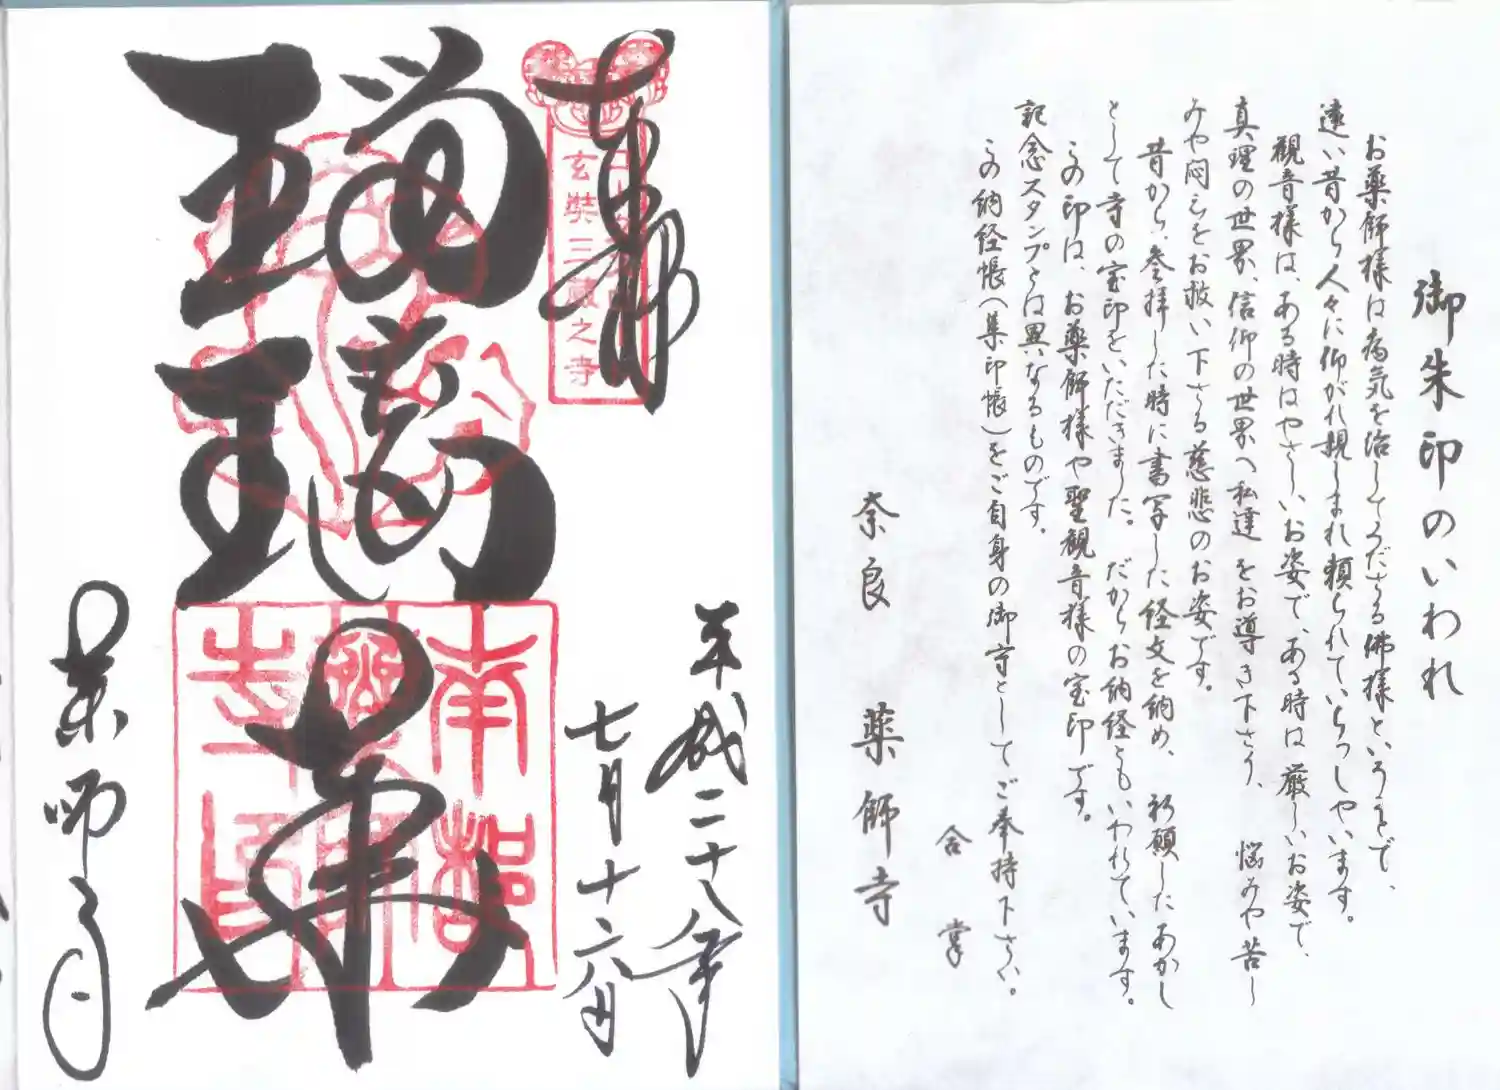 御朱印のいわれ
お薬師様は病気を治してくださる佛様というので、
遠い昔から人々に仰がれ親しまれ頼られていらっしゃいます。
観音様は、ある時はやさしいお姿で、ある時は厳しいお姿で、
真理の世界、信仰の世界へ私達をお導き下さり、悩みや苦し
みや悶えをお救い下さる慈悲のお姿です。
昔から、参拝した時に書写した経文を納め、祈願したあかし
として寺の宝印をいただきました。だからお納経ともいわれています。
この印は、お薬師様や聖観音様の宝印です。
記念スタンプとは異なるものです。
この納経帳(集印帳)をご自身の御守としてご奉持下さい。
合掌
奈良 薬師寺
奉拝
玄奘三蔵之寺
瑠璃
平成二十八年
七月十六日
南都
薬師寺